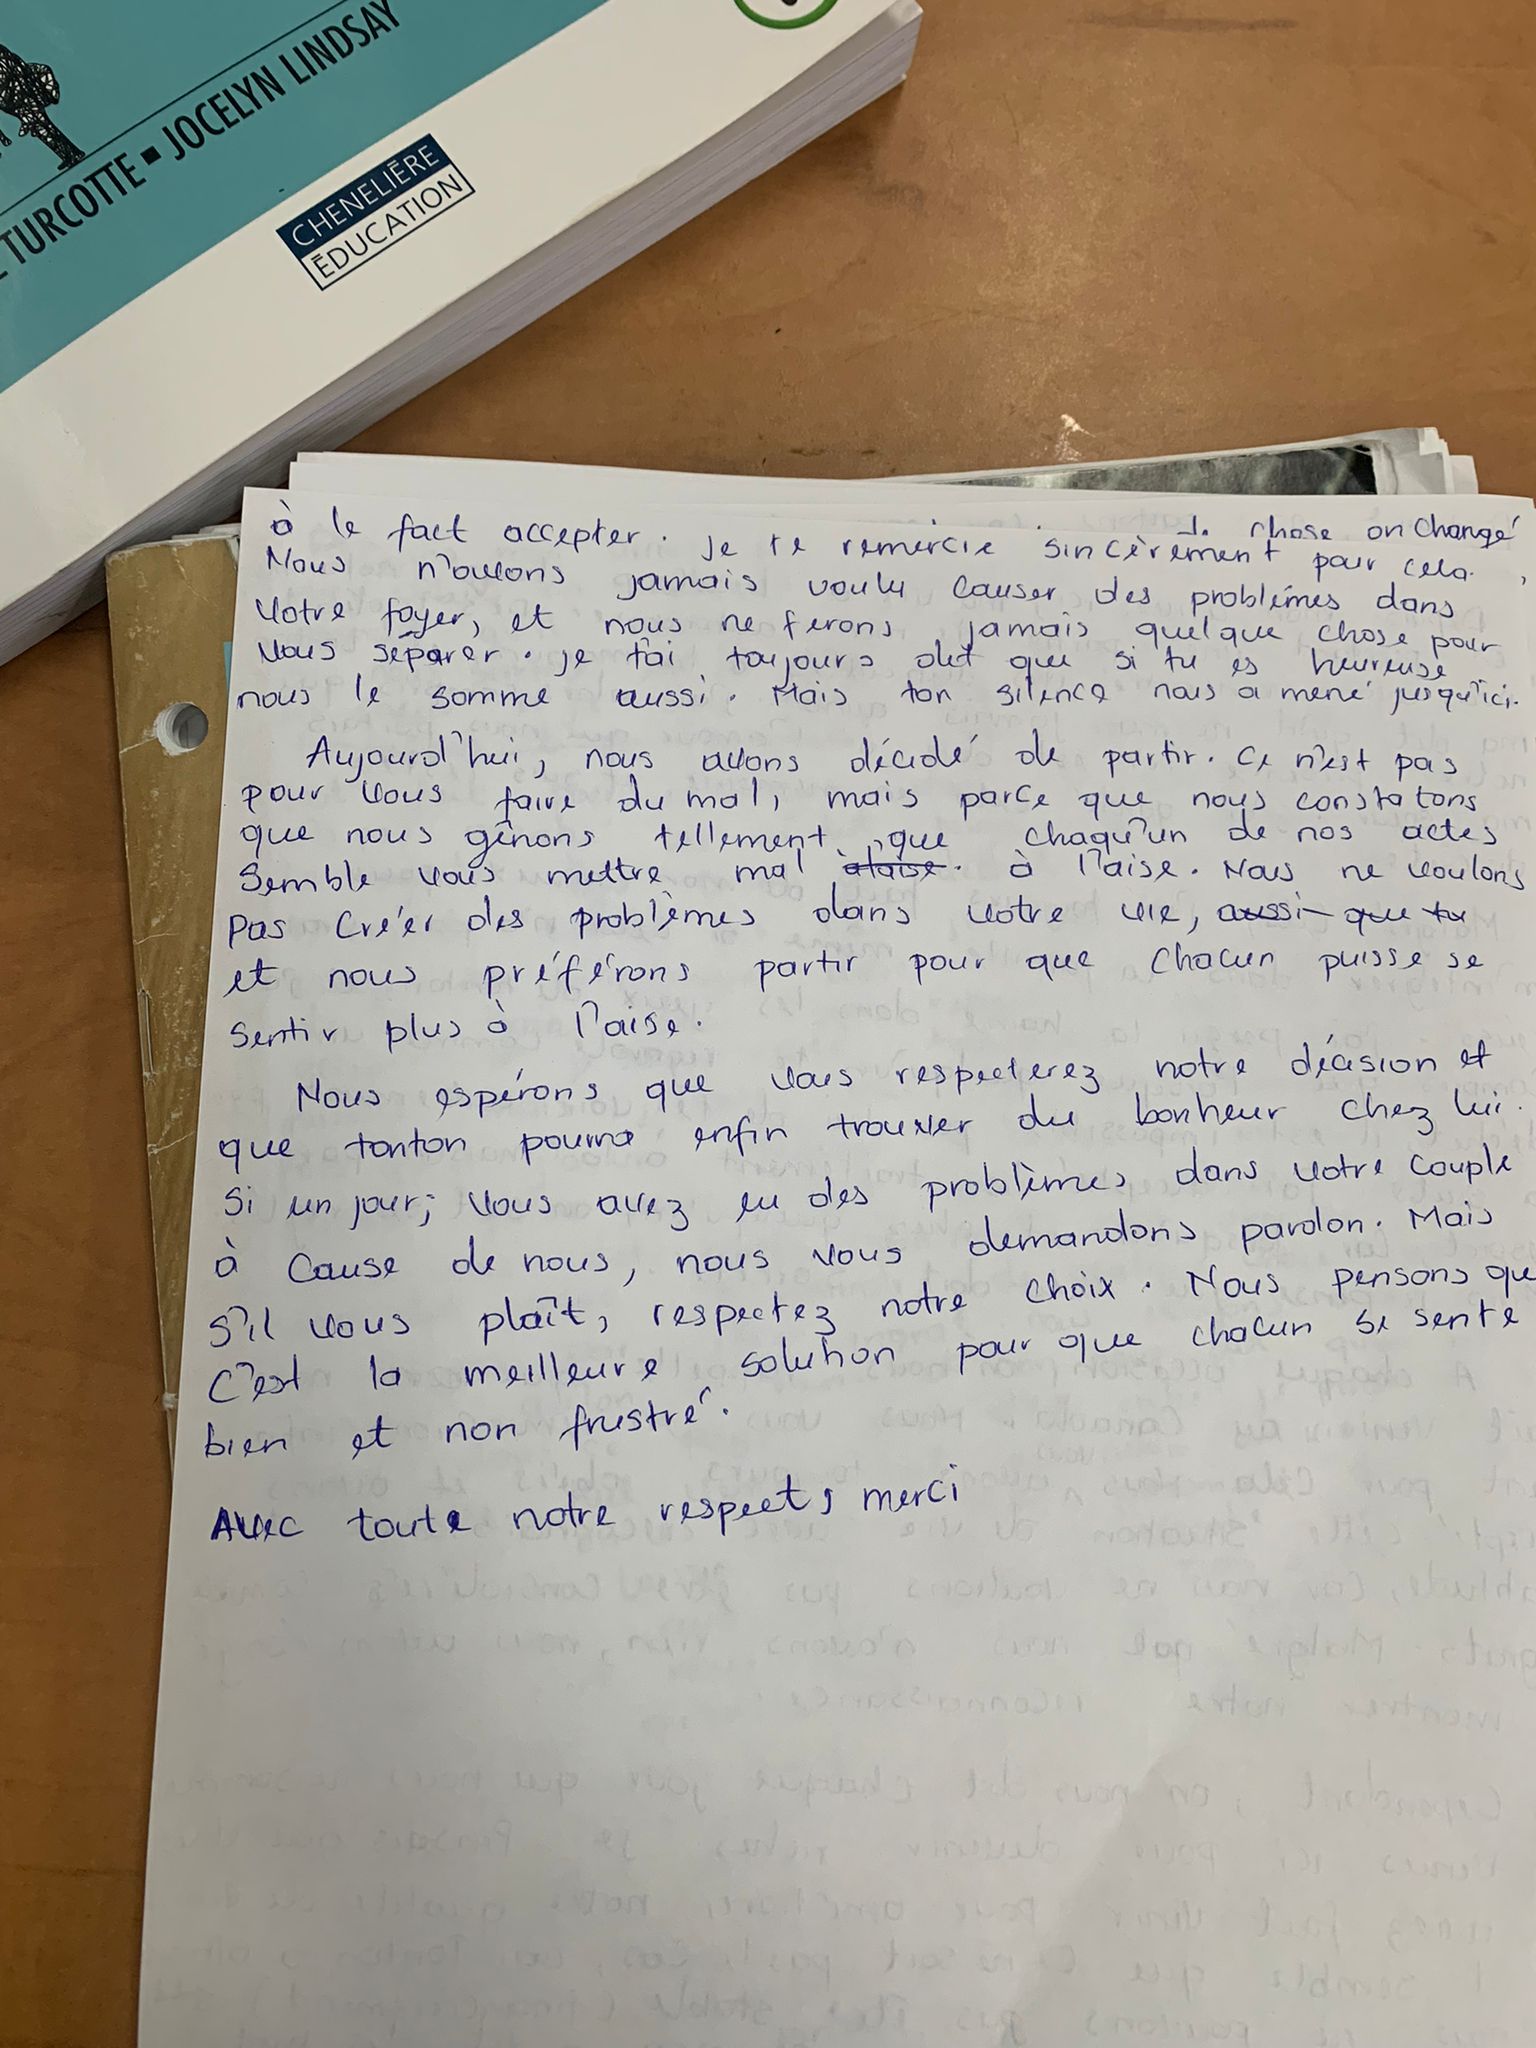 TURCOTTE ▪ JOCELYN LINDSAY
CHENELIÈRE
ÉDUCATION
chose on changé
à le fact accepter. je te remercie sincèrement pour cela.
Nous n'avons jamais voulu causer des problèmes dans
votre foyer, et nous ne ferons jamais quelque chose pour
vous séparer. je t'ai toujours dit que si tu es heureuse
nous le somme aussi. Mais ton silence nous a mené jusqu'ici.
Aujourd'hui, nous avons décidé de partir. Ce n'est pas
pour vous faire du mal, mais parce que nous constatons
que nous gênons tellement, que chaqu'un de nos actes
semble vous mettre mal alaise. à l'aise. Nous ne voulons
pas créer des problèmes dans votre vie, aussi que tu
et nous préférons partir pour que chacun puisse se
sentir plus à l'aise.
Nous espérons que vous respecterez notre décision et
que tonton pourra enfin trouver du bonheur chez lui.
Si un jour; vous avez eu des problèmes dans votre couple
à cause de nous, nous vous demandons pardon. Mais
s'il vous plaît, respectez notre choix. Nous pensons que
c'est la meilleure solution pour que chacun se sente
bien et non frustré.
Avec toute notre respect, merci